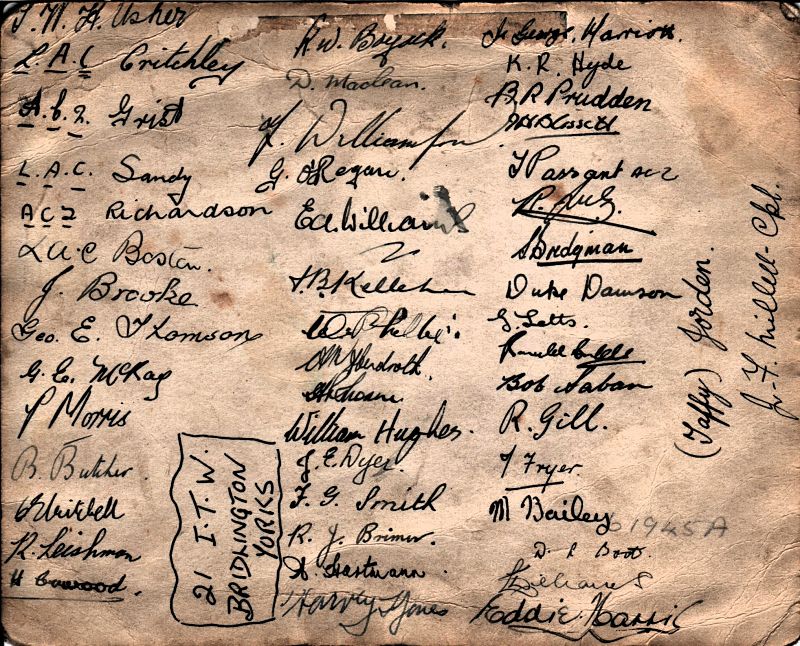 T. W. H. Usher
L.A.C Critchley
A.C.2. Grist
L.A.C. Sandy
AC2 Richardson
L.A.C Boston.
J. Brooke
Geo. E. Thomson
G. E. McKay
P Morris
B. Butcher.
Mitchell
R. Leishman
H
21 I.T.W.
BRIDLINGTON
YORKS
R.W.
D. Maclean.
J. Williamson
G. O'Regan.
Ed. Williams
J.B. Kelleher
W
A
William Hughes.
J. E. Dyer.
F. G. Smith
R. J. Brimer.
A. Hartmann.
Harvey Jones
George Marriott.
K. R. Hyde
B R Prudden
Blissett
T Passant AC2
S Bridgman
Duke Dawson
G. Letts.
Bob Saban
R. Gill.
T Fryer
M Bailey
61945A
D. L Bott.
Williams
Eddie Harris
(Taffy) Jorden.
J. F. Millett - Cpl.